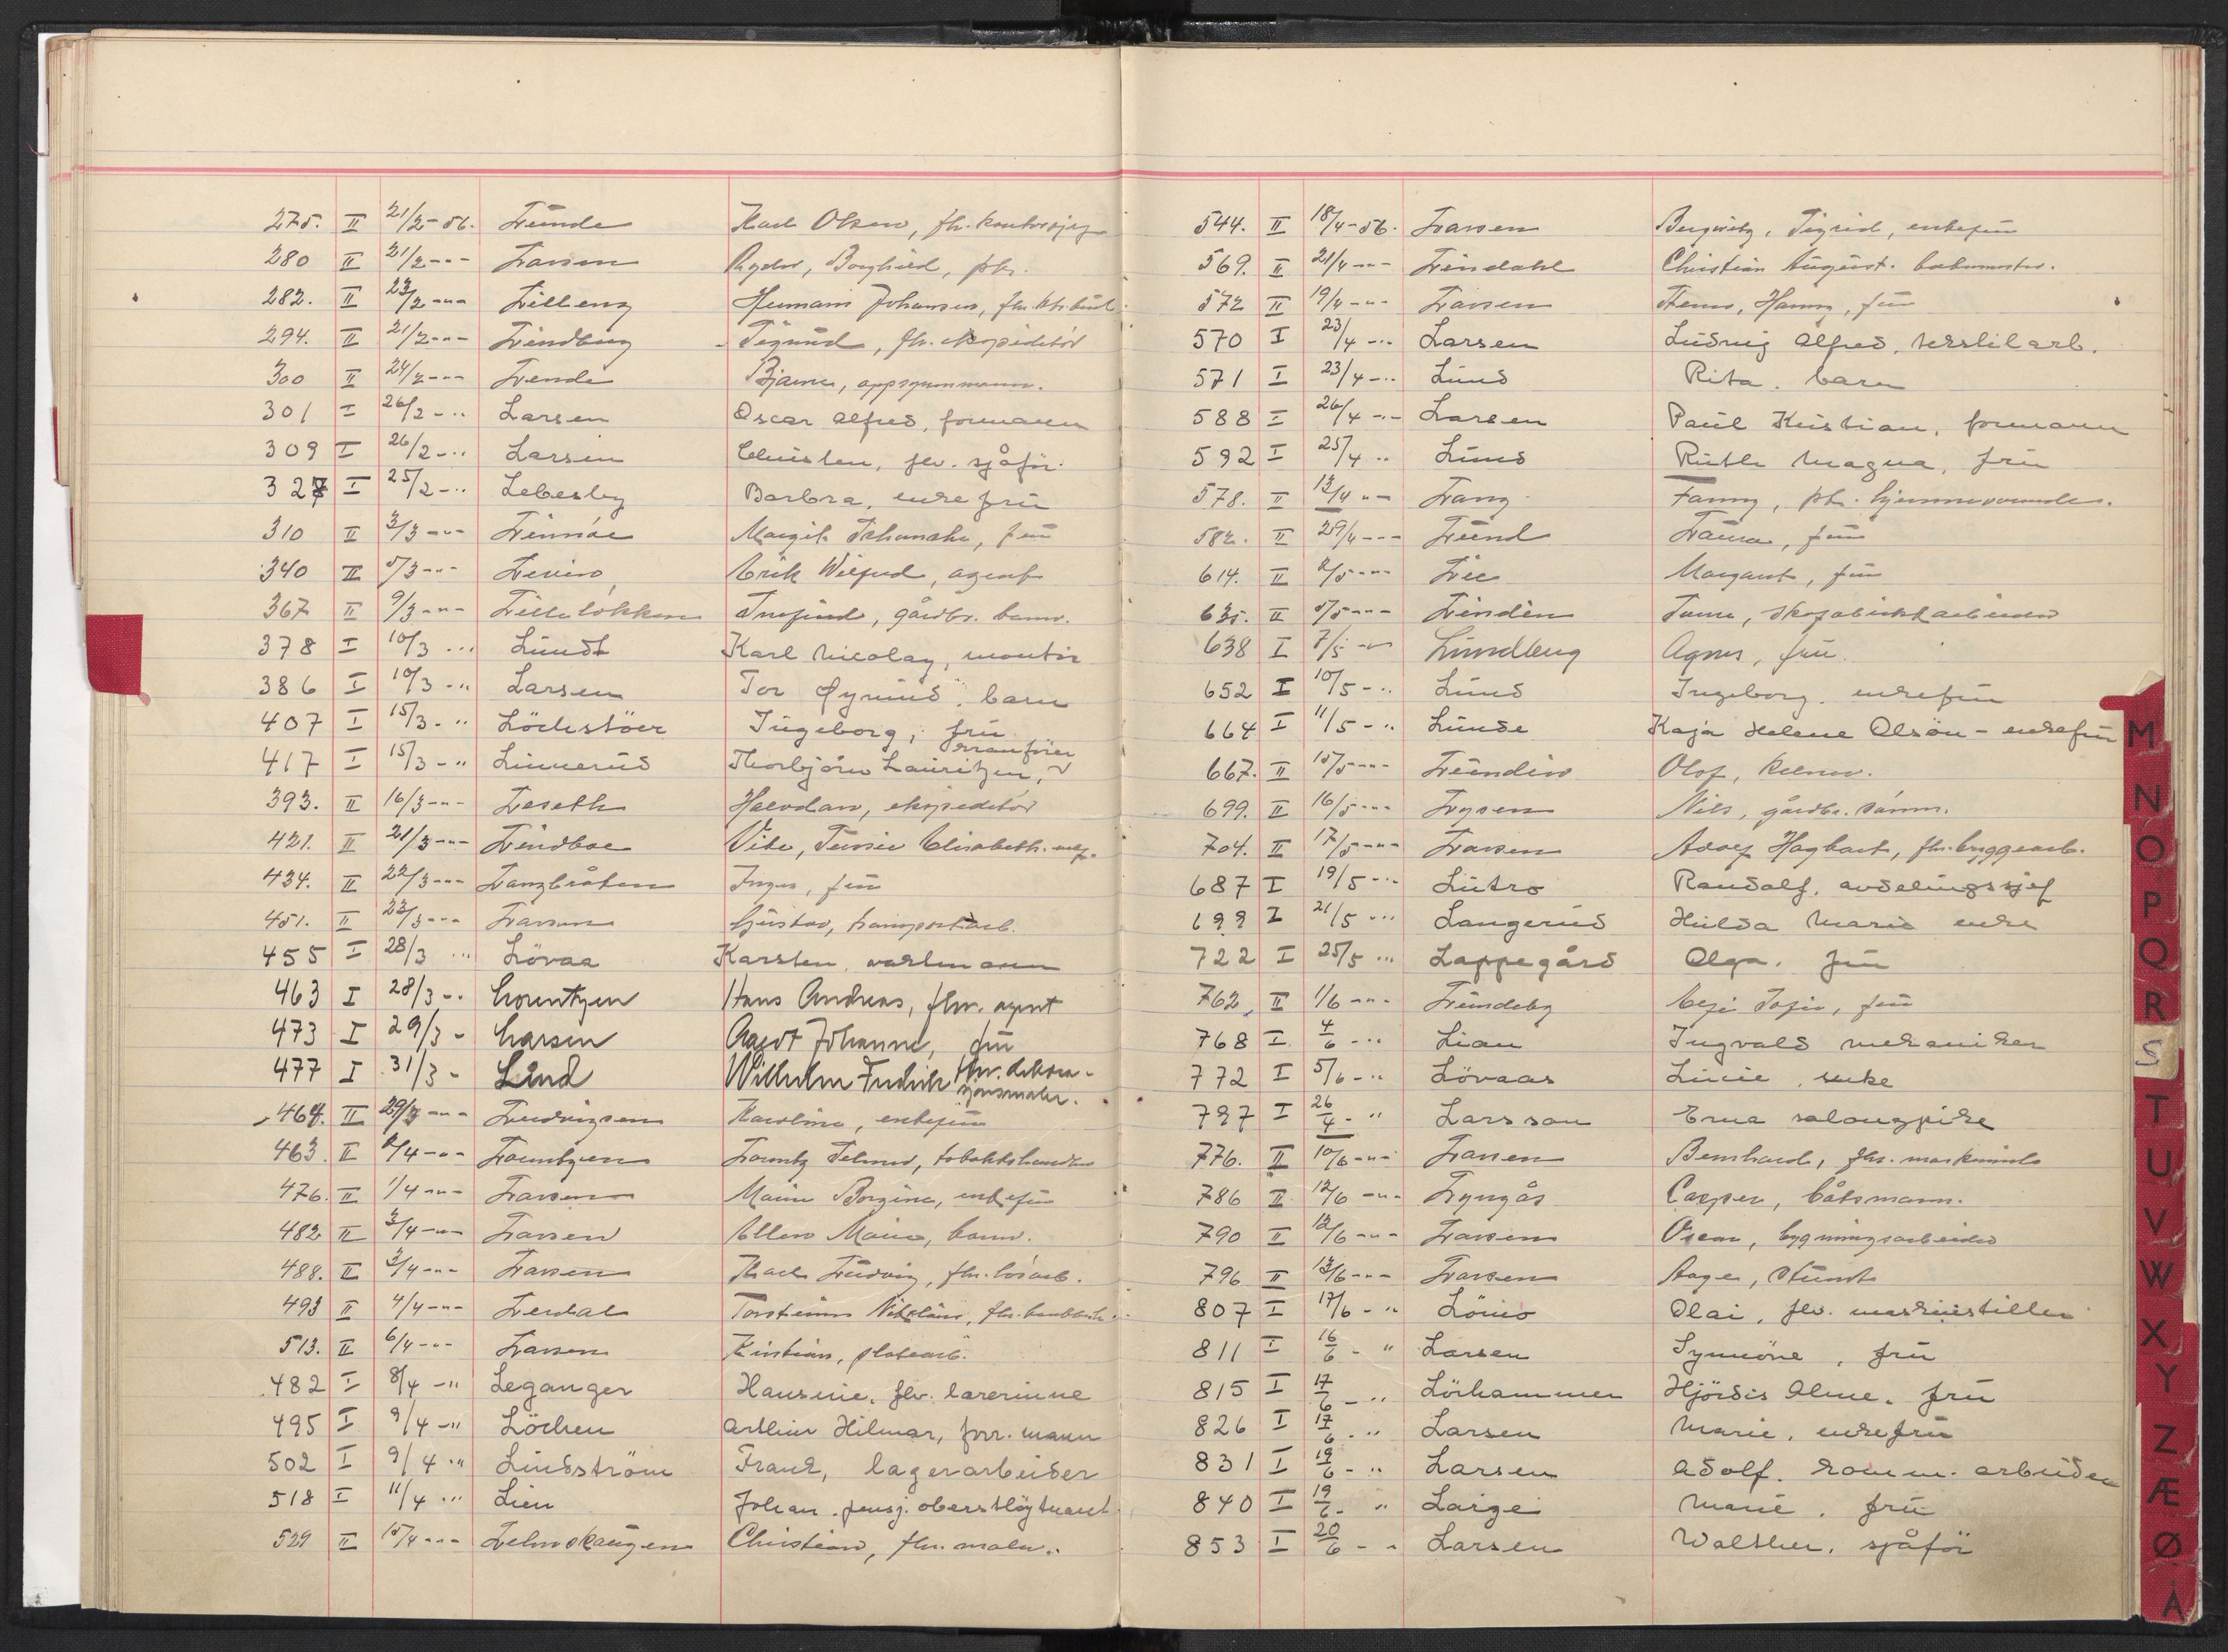 275. II 21/2-56. Lunde Karl Olsen, fhv. kontorsjef
280 II 21/2-"- Larsen Ryder, Borghild, frk.
282. II 23/2-"- Lilleng Hermann Johansen,
294. II 21/2-"- Lindberg Sigurd, fhv. ekspeditør
300 II 24/2-"- Lende Bjarne, oppsynsmann.
301 I 26/2-" Larsen Oscar Alfred, formann
309 I 26/2-" Larsen Christen, fhv. sjåför.
327 I 25/2-" Lebesby Barbra, enkefru
310 II 3/3-"- Margit fru
340 II 5/3-"- Levin Erik Wilfred, agent
367 II 9/3-"- Lilleløkken gårdbr. barn.
378 I 10/3 " Lundt Karl Nicolay, montör
386 I 10/3-" Larsen Tor Öyvind. barn
407 I 15/3-" Löchstöer Ingeborg, fru
417 I 15/3-" Linnerud Thorbjörn Lauritzen, kranförer
393. II 16/3-"- Leseth Halvdan, ekspeditør
421. II 21/3-"- Lindboe Elisabeth.
434. II 22/3-"- Langbråten Inger, fru
451. II 23/3-"- Larsen Gustav, transportarb.
455 I 28/3 " Lövaa Karsten, vaktmann
463 I 28/3-" Lorentzen Hans Andreas, fhv. agent
473 I 29/3- Larsen Aagot Johanne, fru
477 I 31/3- Lind Wilhelm Fredrik fhv. dekorasjonsmaler.
464. II 29/3-"- Ludvigsen Karoline, enkefru
463. II 2/4-"- Lorentzen Lorentz Selmer, tobakkshandler
476. II 1/4-"- Larsen Marie Borgine, enkefru
482 II 3/4-"- Larsen Ellen Marie, barn.
488. II 3/4-"- Larsen Karl Ludvig, fhv. løsarb.
493 II 4/4-"- Lerdal Torstein
513. II 6/4-"- Larsen Kristian, platearb.
482 I 8/4-" Leganger Hansine, fhv. lærerinne
495 I 9/4-" Löchen Arthur Hilmar, forr. mann
502 I 9/4 " Lindström Frank, lagerarbeider
518 I 11/4 " Lien Johan. pensj. oberstløytnant
529 II 15/4-"- Christian, fhv. maler.
544. II 18/4-56. Larsen Bergwitz, Sigrid, enkefru
569. II 21/4-"- Lindahl Christian August.
572 II 19/4-"- Larsen Hanny, fru
570 I 23/4-" Larsen Ludvig Alfred, tekstilarb.
571 I 23/4-" Lund Rita. barn
588 I 26/4-"- Larsen Paul Kristian, formann
592 I 25/4 " Lund Ruth Magna, fru
578. II 13/4 "- Lang Fanny, frk.
582. II 29/4-"- Lund Laura, fru
614. II 2/5-"- Lie Margaret, fru
635. II 5/5-"- Linden skofabrikkarbeider
638 I 7/5-" Lundberg Agnes, fru.
652 I 10/5-" Lund Ingeborg. enkefru
664 I 11/5-" Lunde Kaja Helene Olsön - enkefru
667. II 15/5-"- Lundin Olof, kelner.
699. II 16/5-"- Lysen Nils, gårdbr. sønn.
704. II 17/5-"- Larsen Adolf Hagbart, fhv. bryggearb.
687 I 19/5-" Lütro Randolf, avdelingssjef
699 I 21/5 " Langerud Hilda Marie enke
722 I 25/5 " Lappegård Olga. fru
762. II 1/6-"- Lundeby fru
768 I 4/6-" Lian Ingvald mekaniker
772 I 5/6-" Lövaas Lucie, enke
797 I 26/4-" Larsson Erna salongpike
776. II 10/6-"- Larsen Bernhard, fhv. maskinist
786 II 12/6-"- Lyngås Casper, båtsmann.
790 II 12/6-"- Larsen Oscar, bygningsarbeider
796 II 13/6-"- Larsen Aage, student
807 I 17/6-" Lömo Olai, fhv. maskinstiller
811 I 16/6-" Larsen Synnöve, fru
815 I 17/6-" Lörhammer Hjördis Aline. fru
826 I 17/6-" Larsen Marie, enkefru
831 I 19/6-" Larsen Adolf. komm. arbeider
840 I 19/6-" Large Marie, fru
853 I 20/6-" Larsen Walther, sjåför
M
N
O
P
Q
R
S
T
U
V
W
X
Y
Z
Æ
Ø
Å